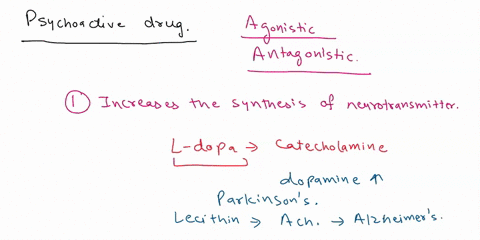 Psychoactive drug.
Agonistic
Antagonistic.
① Increases the synthesis of neurotransmitter.
L-dopa → Catecholamine
dopamine ↑
Parkinson's.
Lecithin → Ach. → Alzheimer's.